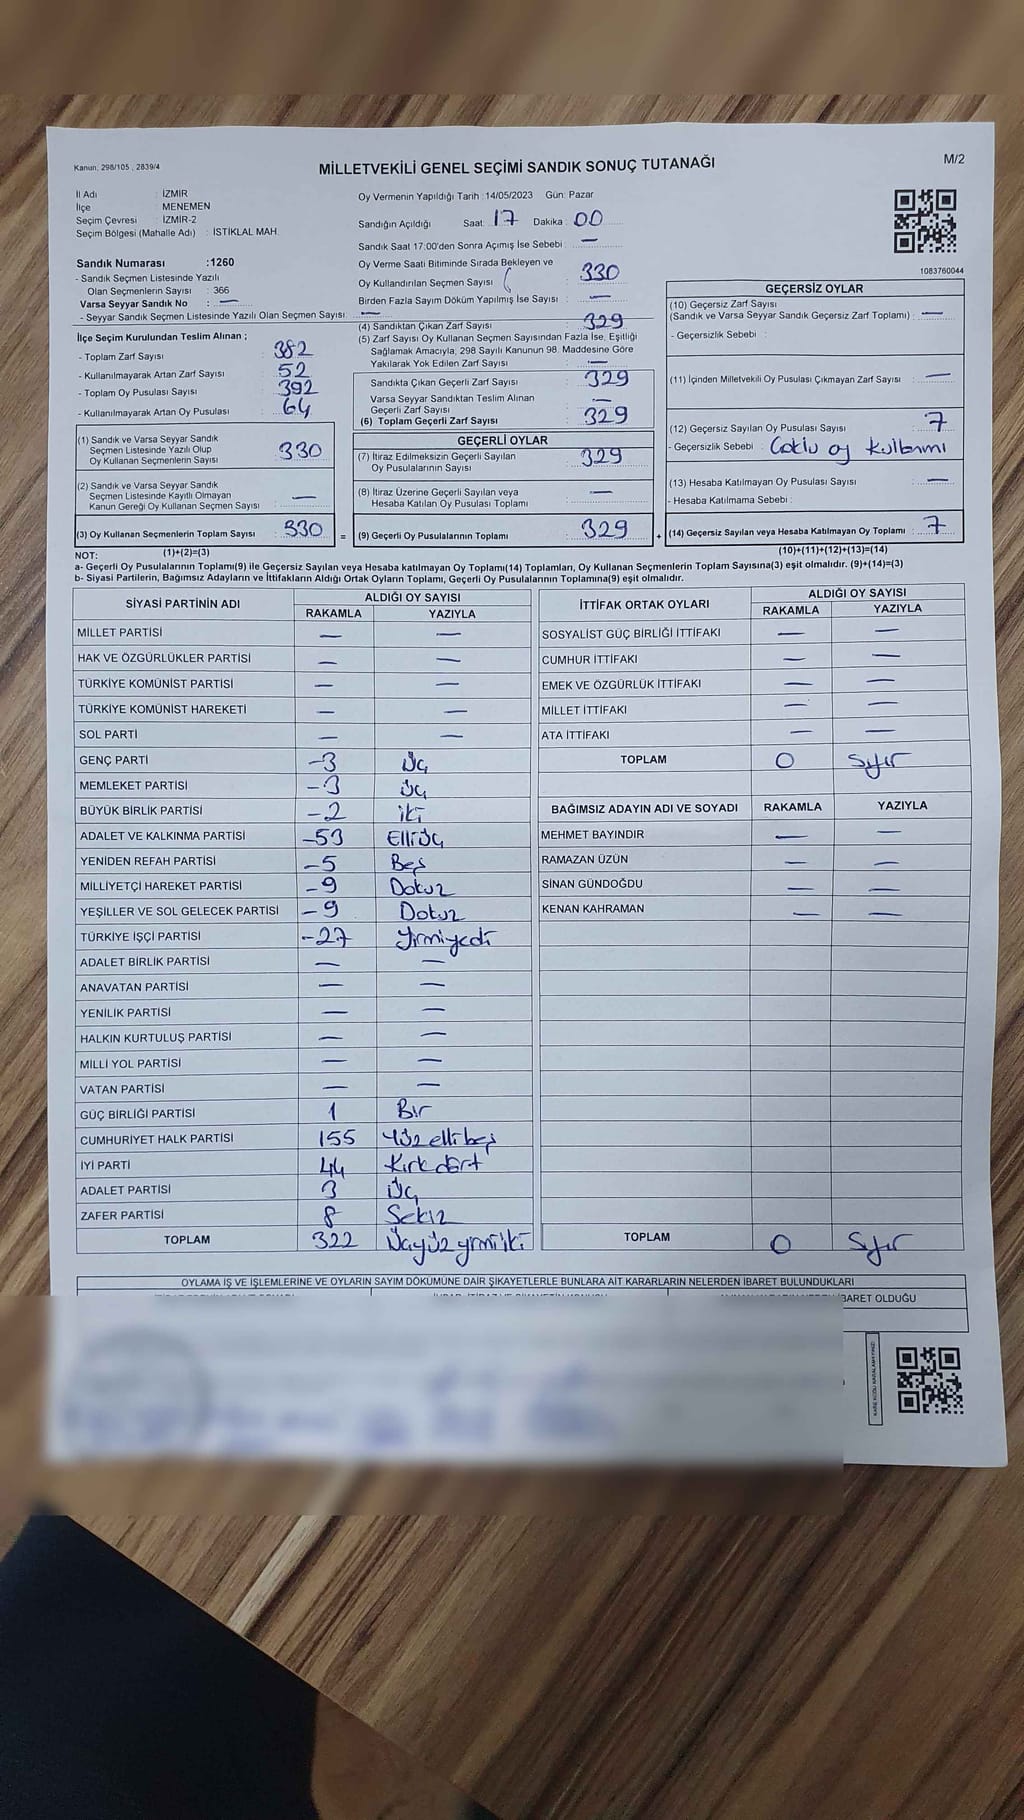 Kanun: 298/105 , 2839/4
MİLLETVEKİLİ GENEL SEÇİMİ SANDIK SONUÇ TUTANAĞI
M/2
İl Adı : İZMİR
İlçe : MENEMEN
Seçim Çevresi : İZMİR-2
Seçim Bölgesi (Mahalle Adı) : İSTİKLAL MAH.
Sandık Numarası :1260
- Sandık Seçmen Listesinde Yazılı
Olan Seçmenlerin Sayısı : 366
Varsa Seyyar Sandık No : —
- Seyyar Sandık Seçmen Listesinde Yazılı Olan Seçmen Sayısı : —
Oy Vermenin Yapıldığı Tarih :14/05/2023 Gün: Pazar
Sandığın Açıldığı Saat: 17 Dakika : 00
Sandık Saat 17:00'den Sonra Açımış İse Sebebi : —
Oy Verme Saati Bitiminde Sırada Bekleyen ve
Oy Kullandırılan Seçmen Sayısı : 330
Birden Fazla Sayım Döküm Yapılmış İse Sayısı : —
1083760044
İlçe Seçim Kurulundan Teslim Alınan ;
- Toplam Zarf Sayısı : 382
- Kullanılmayarak Artan Zarf Sayısı : 52
- Toplam Oy Pusulası Sayısı : 392
- Kullanılmayarak Artan Oy Pusulası : 64
(1) Sandık ve Varsa Seyyar Sandık
Seçmen Listesinde Yazılı Olup
Oy Kullanan Seçmenlerin Sayısı : 330
(2) Sandık ve Varsa Seyyar Sandık
Seçmen Listesinde Kayıtlı Olmayan
Kanun Gereği Oy Kullanan Seçmen Sayısı : —
(3) Oy Kullanan Seçmenlerin Toplam Sayısı : 330 =
(4) Sandıktan Çıkan Zarf Sayısı : 329
(5) Zarf Sayısı Oy Kullanan Seçmen Sayısından Fazla İse, Eşitliği
Sağlamak Amacıyla, 298 Sayılı Kanunun 98. Maddesine Göre
Yakılarak Yok Edilen Zarf Sayısı : —
Sandıkta Çıkan Geçerli Zarf Sayısı : 329
Varsa Seyyar Sandıktan Teslim Alınan
Geçerli Zarf Sayısı : —
(6) Toplam Geçerli Zarf Sayısı : 329
GEÇERLİ OYLAR
(7) İtiraz Edilmeksizin Geçerli Sayılan
Oy Pusulalarının Sayısı : 329
(8) İtiraz Üzerine Geçerli Sayılan veya
Hesaba Katılan Oy Pusulası Toplamı : —
(9) Geçerli Oy Pusulalarının Toplamı : 329 +
GEÇERSİZ OYLAR
(10) Geçersiz Zarf Sayısı
(Sandık ve Varsa Seyyar Sandık Geçersiz Zarf Toplamı) : —
- Geçersizlik Sebebi :
(11) İçinden Milletvekili Oy Pusulası Çıkmayan Zarf Sayısı : —
(12) Geçersiz Sayılan Oy Pusulası Sayısı : 7
- Geçersizlik Sebebi : Çoklu oy kullanımı
(13) Hesaba Katılmayan Oy Pusulası Sayısı : —
- Hesaba Katılmama Sebebi :
(14) Geçersiz Sayılan veya Hesaba Katılmayan Oy Toplamı : 7
NOT: (1)+(2)=(3)
(10)+(11)+(12)+(13)=(14)
a- Geçerli Oy Pusulalarının Toplamı(9) ile Geçersiz Sayılan veya Hesaba katılmayan Oy Toplamı(14) Toplamları, Oy Kullanan Seçmenlerin Toplam Sayısına(3) eşit olmalıdır. (9)+(14)=(3)
b- Siyasi Partilerin, Bağımsız Adayların ve İttifakların Aldığı Ortak Oyların Toplamı, Geçerli Oy Pusulalarının Toplamına(9) eşit olmalıdır.
SİYASİ PARTİNİN ADI ALDIĞI OY SAYISI
RAKAMLA YAZIYLA
MİLLET PARTİSİ — —
HAK VE ÖZGÜRLÜKLER PARTİSİ — —
TÜRKİYE KOMÜNİST PARTİSİ — —
TÜRKİYE KOMÜNİST HAREKETİ — —
SOL PARTİ — —
GENÇ PARTİ -3 Üç
MEMLEKET PARTİSİ -3 Üç
BÜYÜK BİRLİK PARTİSİ -2 iki
ADALET VE KALKINMA PARTİSİ -53 Elliüç
YENİDEN REFAH PARTİSİ -5 Beş
MİLLİYETÇİ HAREKET PARTİSİ -9 Dokuz
YEŞİLLER VE SOL GELECEK PARTİSİ -9 Dokuz
TÜRKİYE İŞÇİ PARTİSİ -27 Yirmiyedi
ADALET BİRLİK PARTİSİ — —
ANAVATAN PARTİSİ — —
YENİLİK PARTİSİ — —
HALKIN KURTULUŞ PARTİSİ — —
MİLLİ YOL PARTİSİ — —
VATAN PARTİSİ — —
GÜÇ BİRLİĞİ PARTİSİ 1 Bir
CUMHURİYET HALK PARTİSİ 155 Yüz elli beş
İYİ PARTİ 44 Kırk dört
ADALET PARTİSİ 3 Üç
ZAFER PARTİSİ 8 Sekiz
TOPLAM 322 Üçyüz yirmi iki
İTTİFAK ORTAK OYLARI ALDIĞI OY SAYISI
RAKAMLA YAZIYLA
SOSYALİST GÜÇ BİRLİĞİ İTTİFAKI — —
CUMHUR İTTİFAKI — —
EMEK VE ÖZGÜRLÜK İTTİFAKI — —
MİLLET İTTİFAKI — —
ATA İTTİFAKI — —
TOPLAM 0 Sıfır
BAĞIMSIZ ADAYIN ADI VE SOYADI RAKAMLA YAZIYLA
MEHMET BAYINDIR — —
RAMAZAN ÜZÜN — —
SİNAN GÜNDOĞDU — —
KENAN KAHRAMAN — —
TOPLAM 0 Sıfır
OYLAMA İŞ VE İŞLEMLERİNE VE OYLARIN SAYIM DÖKÜMÜNE DAİR ŞİKAYETLERLE BUNLARA AİT KARARLARIN NELERDEN İBARET BULUNDUKLARI
İBARET OLDUĞU